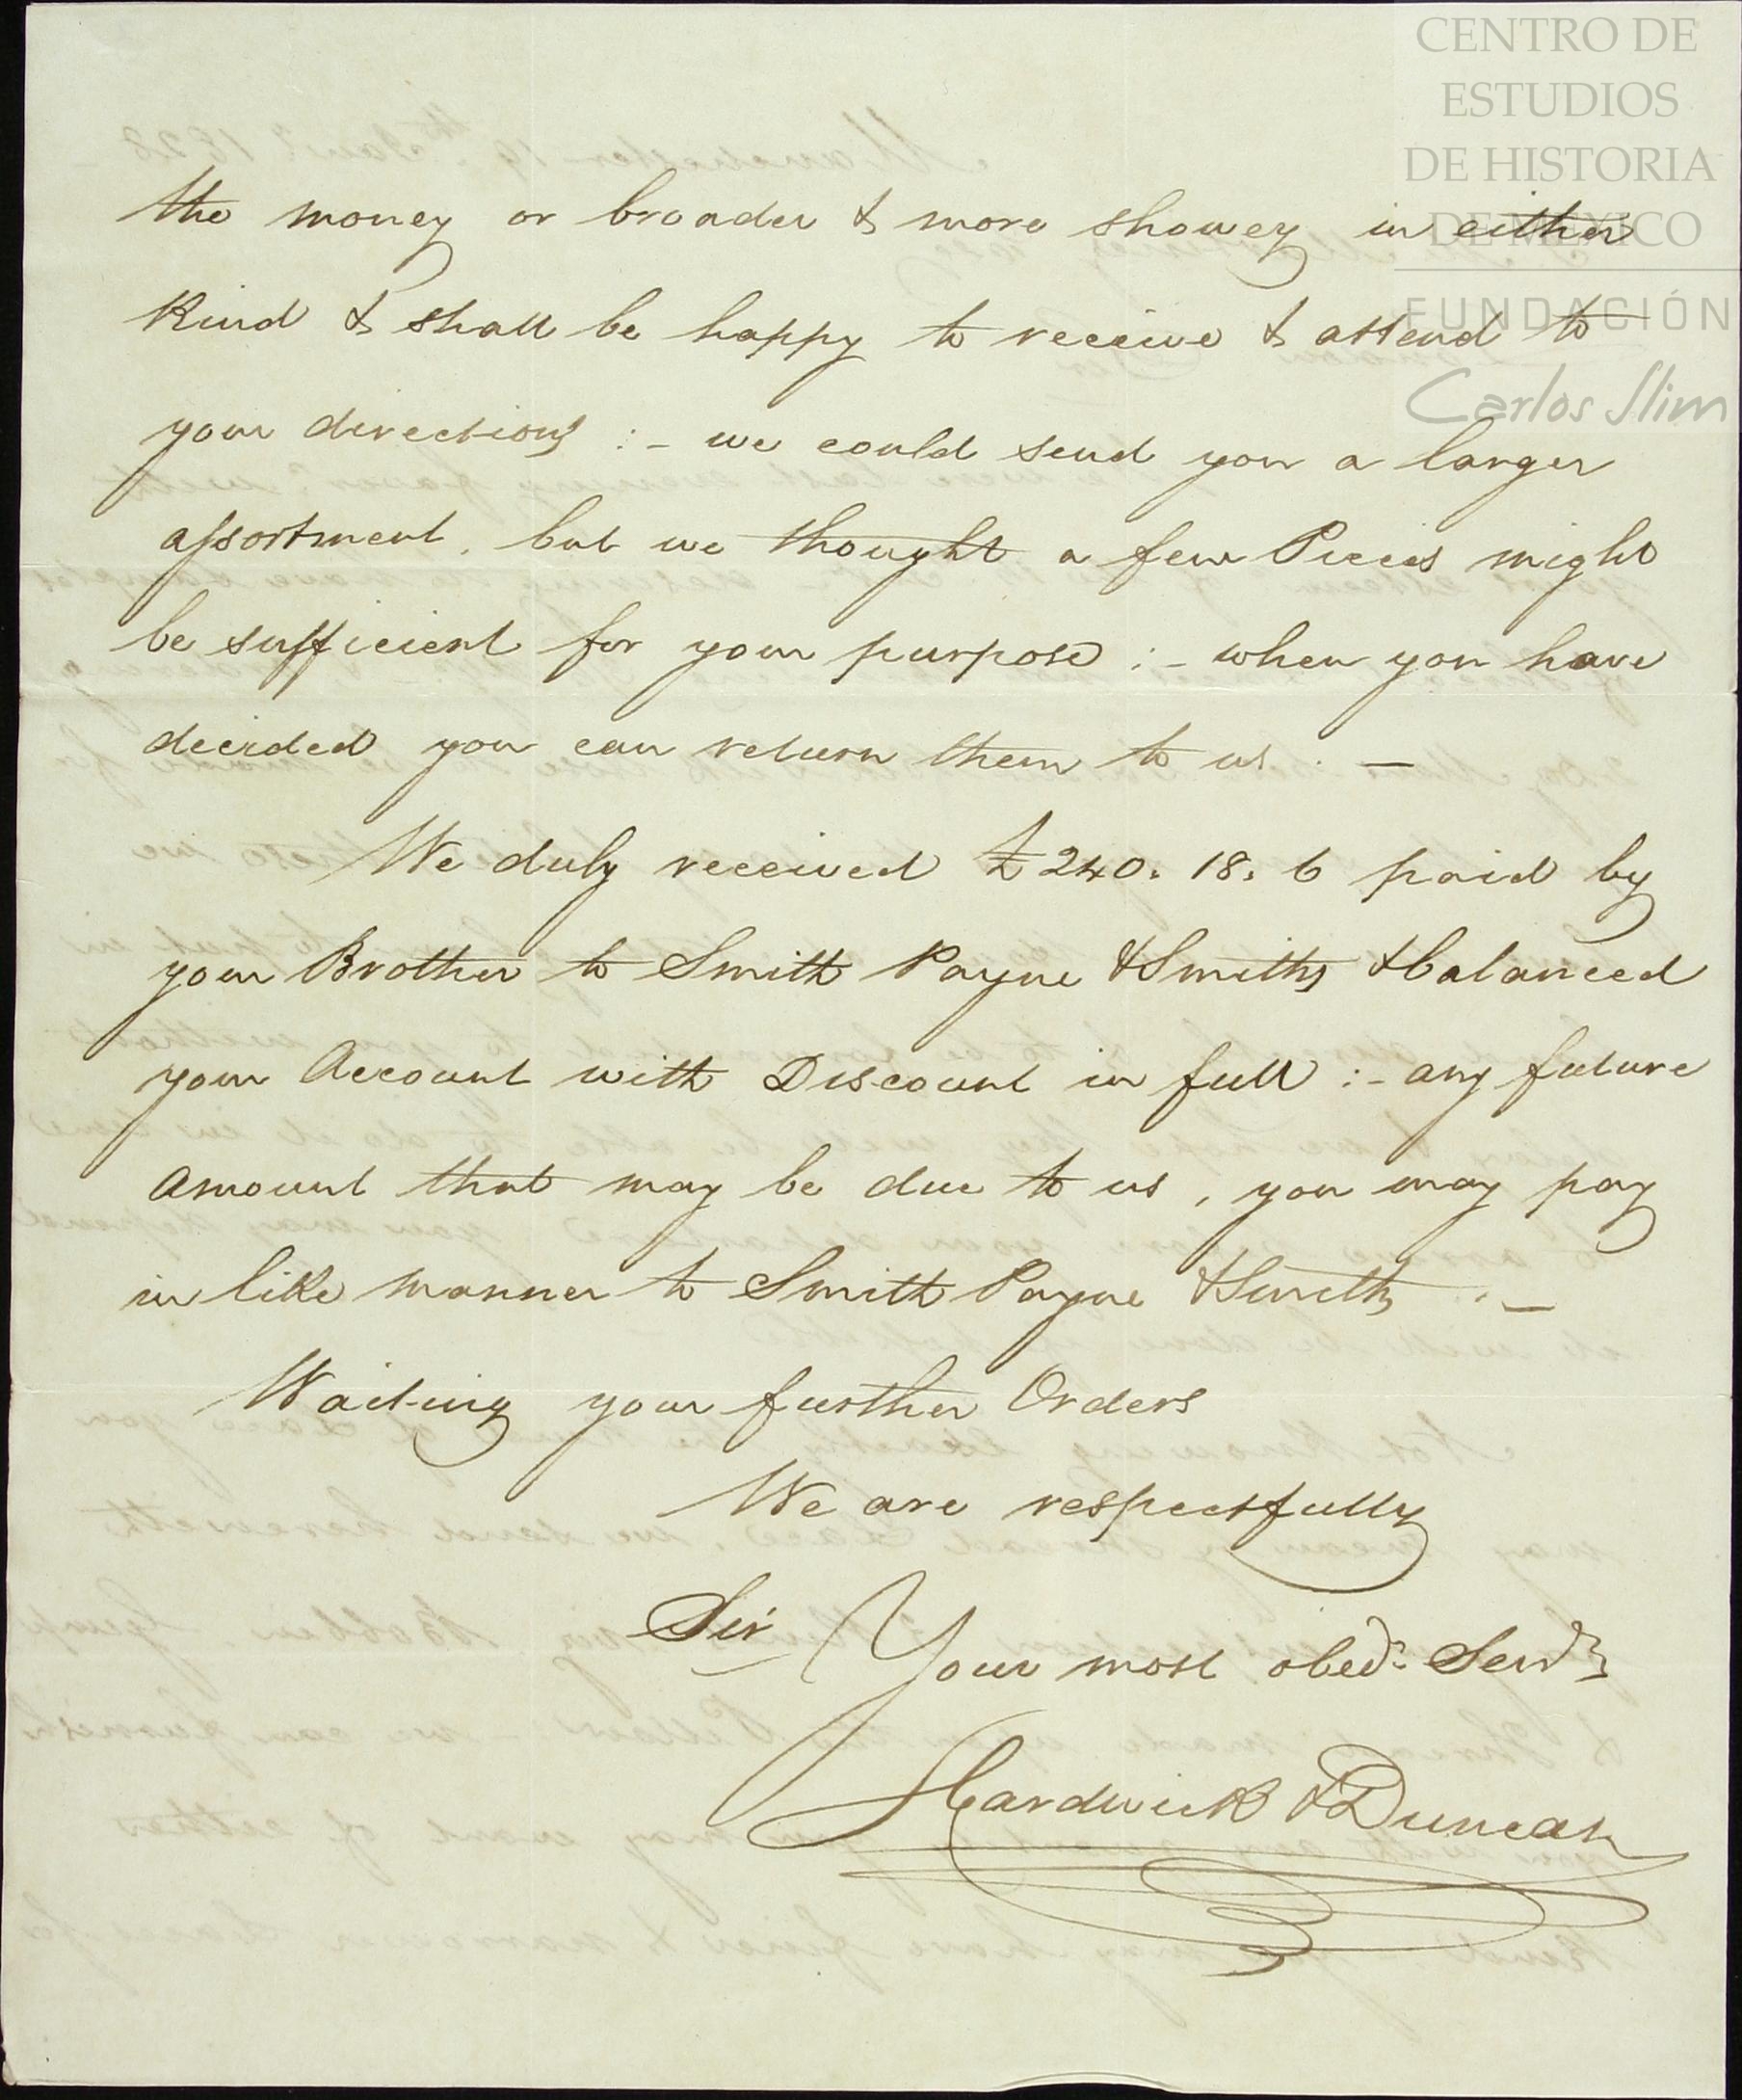 CENTRO DE
ESTUDIOS
DE HISTORIA
DE MÉXICO
FUNDACIÓN
Carlos Slim
the money or broader & more showey in either
Kind & shall be happy to receive & attend to
your directions :- we could send you a larger
assortment, but we thought a few Pieces might
be sufficient for your purpose :- when you have
decided you can return them to us . —
We duly received £240. 18. 6 paid by
your Brother to Smith Payne & Smiths & balanced
your Account with Discount in full :- any future
amount that may be due to us, you may pay
in like manner to Smith Payne & Smiths . —
Waiting your further Orders
We are respectfully
Sir Your most obedt Servts
Hardwick & Duncan